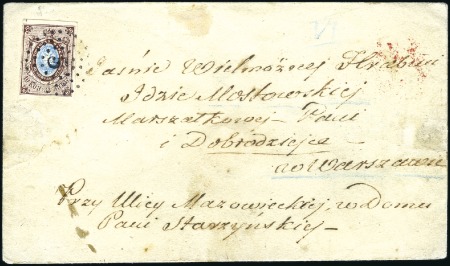 Jaśnie Wielmożnej Hrabini
Idzie Mostowskiej
Marszałkowej – Pani
i Dobrodziejce
w Warszawie
Przy Ulicy Mazowieckiej, w Domu
Pani Starzyńskiej –